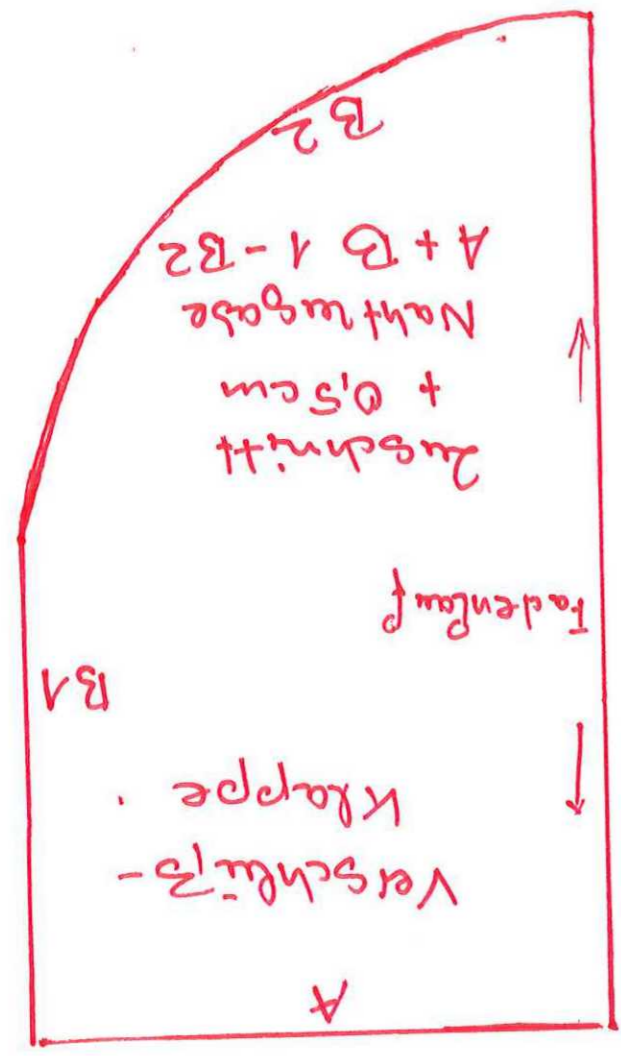 A
Verschlüß-
Klappe
B1
Fadenlauf
Zuschnitt
+ 0,5 cm
Nahtzugabe
A + B 1 - B2
B2